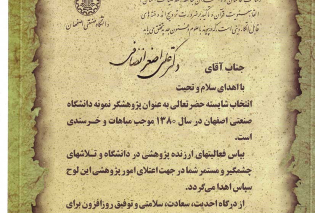 دانشگاه صنعتی اصفهان
دکتر علی اصغر انصافی
جناب آقای
با اهدای سلام و تحیت
انتخاب شایسته حضرتعالی به عنوان پژوهشگر نمونه دانشگاه
صنعتی اصفهان در سال ۱۳۸۰ موجب مباهات و خرسندی
است.
بپاس فعالیتهای ارزنده پژوهشی در دانشگاه و تلاشهای
چشمگیر و مستمر شما در جهت اعتلای امور پژوهشی این لوح
سپاس اهدا می‌گردد.
از درگاه احدیت، سعادت، سلامتی و توفیق روزافزون برای